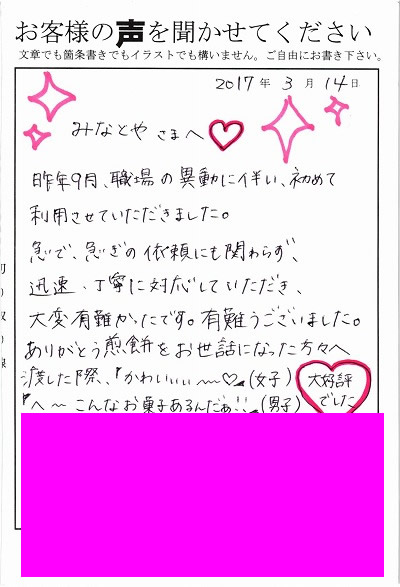 お客様の声を聞かせてください
文章でも箇条書きでもイラストでも構いません。ご自由にお書き下さい。
2017年 3月 14日
みなとや さまへ♡
昨年9月、職場の異動に伴い、初めて
利用させていただきました。
急で、急ぎの依頼にも関わらず、
迅速、丁寧に対応していただき、
大変有難かったです。有難うございました。
ありがとう煎餅をお世話になった方々へ
渡した際、『かわいぃぃ〜〜♡』(女子)
『へ〜こんなお菓子あるんだぁ!!』(男子)
大好評
でした